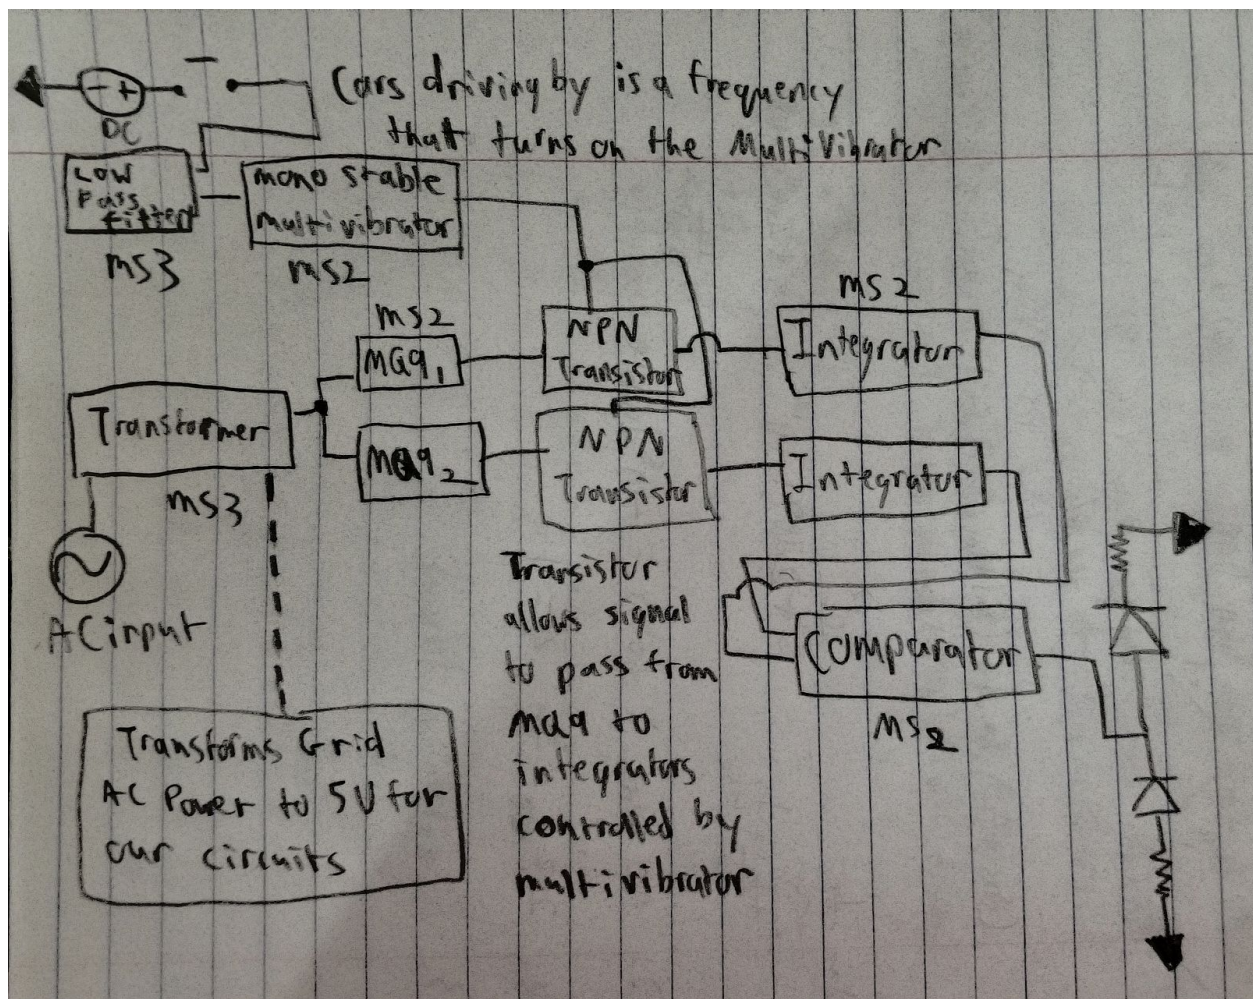 Cars driving by is a frequency
that turns on the MultiVibrator
DC
Low
Pass
filter
ms3
mono stable
multivibrator
ms2
ms2
MQ9₁
MQ9₂
NPN
Transistor
NPN
Transistor
ms2
Integrator
Integrator
Transformer
ms3
AC input
Transforms Grid
AC Power to 5V for
our circuits
Transistor
allows signal
to pass from
MQ9 to
integrators
controlled by
multivibrator
Comparator
MS2
- +